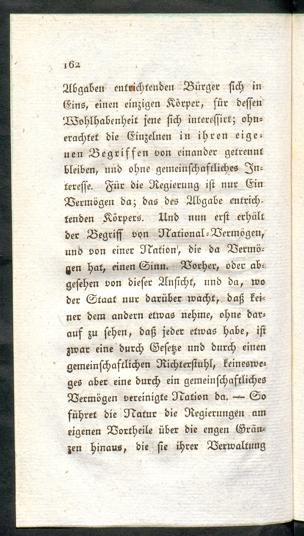 162
Abgaben entrichtenden Bürger sich in
Eins, einen einzigen Körper, für dessen
Wohlhabenheit jene sich interessirt; ohn-
erachtet die Einzelnen in ihren eige-
nen Begriffen von einander getrennt
bleiben, und ohne gemeinschaftliches In-
teresse. Für die Regierung ist nur Ein
Vermögen da; das des Abgabe entrich-
tenden Körpers. Und nun erst erhält
der Begriff von National-Vermögen,
und von einer Nation, die da Vermö-
gen hat, einen Sinn. Vorher, oder ab-
gesehen von dieser Ansicht, und da, wo
der Staat nur darüber wacht, daß kei-
ner dem andern etwas nehme, ohne dar-
auf zu sehen, daß jeder etwas habe, ist
zwar eine durch Gesetze und durch einen
gemeinschaftlichen Richterstuhl, keineswe-
ges aber eine durch ein gemeinschaftliches
Vermögen vereinigte Nation da. — So
führet die Natur die Regierungen am
eigenen Vortheile über die engen Grän-
zen hinaus, die sie ihrer Verwaltung